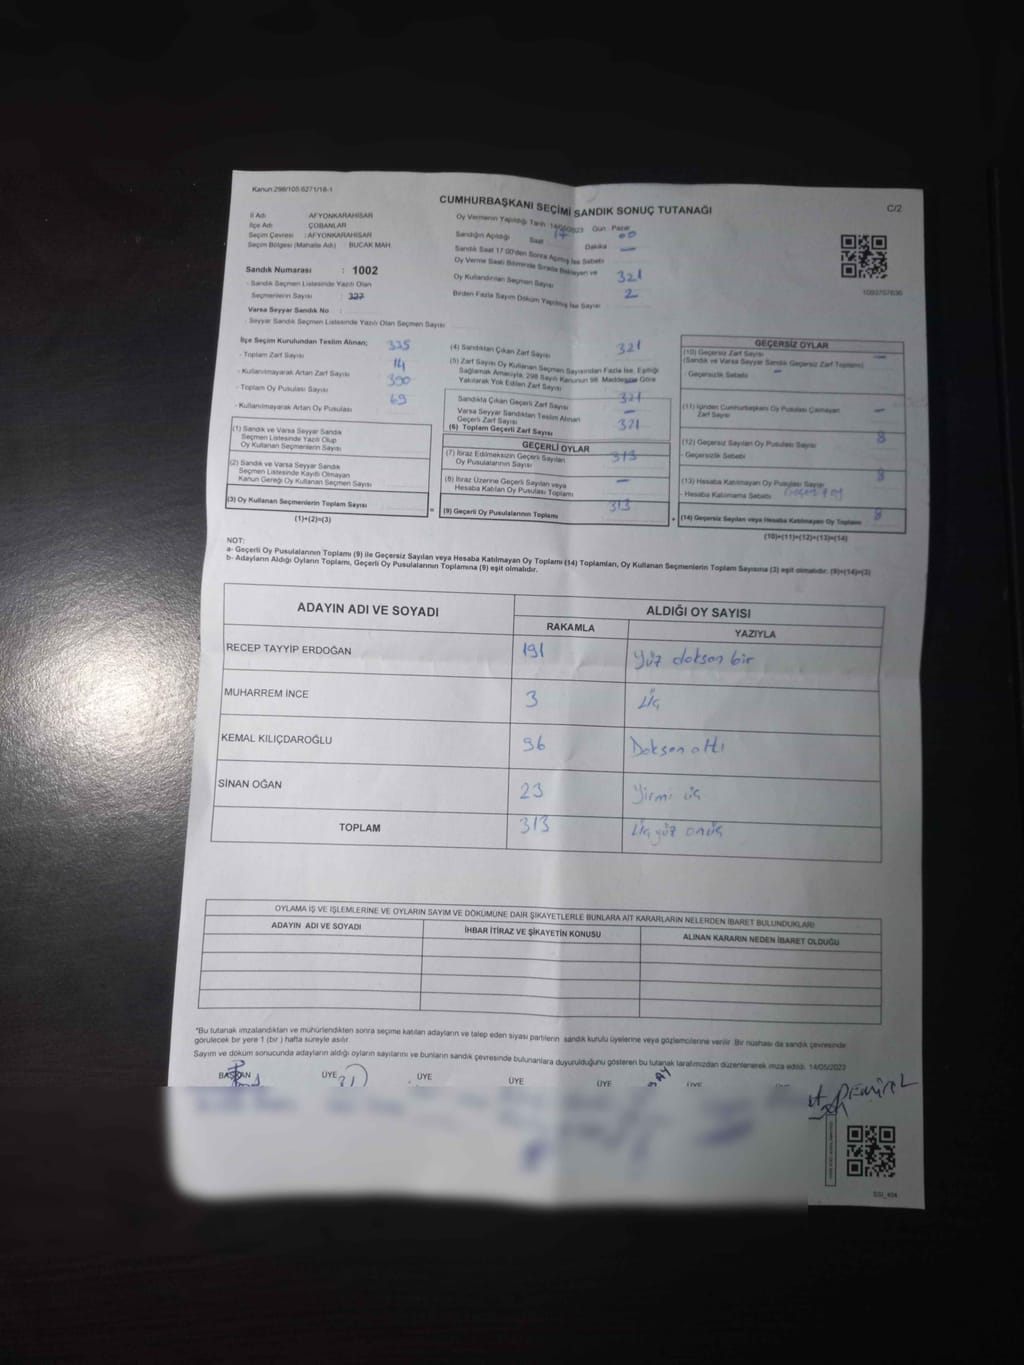 Kanun:298/105.6271/18-1
CUMHURBAŞKANI SEÇİMİ SANDIK SONUÇ TUTANAĞI
C/2
İl Adı AFYONKARAHİSAR
İlçe Adı ÇOBANLAR
Seçim Çevresi : AFYONKARAHİSAR
Seçim Bölgesi (Mahalle Adı) : BUCAK MAH.
Sandık Numarası : 1002
- Sandık Seçmen Listesinde Yazılı Olan
Seçmenlerin Sayısı : 327
Varsa Seyyar Sandık No
- Seyyar Sandık Seçmen Listesinde Yazılı Olan Seçmen Sayısı
Oy Vermenin Yapıldığı Tarih :14/05/2023 Gün : Pazar
Sandığın Açıldığı Saat 17 Dakika 00
Sandık Saat 17:00'den Sonra Açılmış İse Sebebi —
Oy Verme Saati Bitiminde Sırada Bekleyen ve
Oy Kullandırılan Seçmen Sayısı 321
Birden Fazla Sayım Döküm Yapılmış İse Sayısı 2
1093757636
İlçe Seçim Kurulundan Teslim Alınan;
- Toplam Zarf Sayısı 335
- Kullanılmayarak Artan Zarf Sayısı 14
- Toplam Oy Pusulası Sayısı 390
- Kullanılmayarak Artan Oy Pusulası 69
(1) Sandık ve Varsa Seyyar Sandık
Seçmen Listesinde Yazılı Olup
Oy Kullanan Seçmenlerin Sayısı
(2) Sandık ve Varsa Seyyar Sandık
Seçmen Listesinde Kayıtlı Olmayan
Kanun Gereği Oy Kullanan Seçmen Sayısı
(3) Oy Kullanan Seçmenlerin Toplam Sayısı
(1)+(2)=(3)
(4) Sandıktan Çıkan Zarf Sayısı 321
(5) Zarf Sayısı Oy Kullanan Seçmen Sayısından Fazla İse, Eşitliği
Sağlamak Amacıyla, 298 Sayılı Kanunun 98. Maddesine Göre
Yakılarak Yok Edilen Zarf Sayısı —
Sandıkta Çıkan Geçerli Zarf Sayısı 321
Varsa Seyyar Sandıktan Teslim Alınan
Geçerli Zarf Sayısı —
(6) Toplam Geçerli Zarf Sayısı 321
GEÇERLİ OYLAR
(7) İtiraz Edilmeksizin Geçerli Sayılan
Oy Pusulalarının Sayısı 313
(8) İtiraz Üzerine Geçerli Sayılan veya
Hesaba Katılan Oy Pusulası Toplamı —
(9) Geçerli Oy Pusulalarının Toplamı 313
GEÇERSİZ OYLAR
(10) Geçersiz Zarf Sayısı —
(Sandık ve Varsa Seyyar Sandık Geçersiz Zarf Toplamı)
- Geçersizlik Sebebi —
(11) İçinden Cumhurbaşkanı Oy Pusulası Çıkmayan
Zarf Sayısı —
(12) Geçersiz Sayılan Oy Pusulası Sayısı 8
- Geçersizlik Sebebi
(13) Hesaba Katılmayan Oy Pusulası Sayısı 8
- Hesaba Katılmama Sebebi
(14) Geçersiz Sayılan veya Hesaba Katılmayan Oy Toplamı 8
(10)+(11)+(12)+(13)=(14)
NOT:
a- Geçerli Oy Pusulalarının Toplamı (9) ile Geçersiz Sayılan veya Hesaba Katılmayan Oy Toplamı (14) Toplamları, Oy Kullanan Seçmenlerin Toplam Sayısına (3) eşit olmalıdır. (9)+(14)=(3)
b- Adayların Aldığı Oyların Toplamı, Geçerli Oy Pusulalarının Toplamına (9) eşit olmalıdır.
ADAYIN ADI VE SOYADI ALDIĞI OY SAYISI
RAKAMLA YAZIYLA
RECEP TAYYİP ERDOĞAN 191 Yüz doksan bir
MUHARREM İNCE 3 Üç
KEMAL KILIÇDAROĞLU 96 Doksan altı
SİNAN OĞAN 23 Yirmi üç
TOPLAM 313 Üçyüz onüç
OYLAMA İŞ VE İŞLEMLERİNE VE OYLARIN SAYIM VE DÖKÜMÜNE DAİR ŞİKAYETLERLE BUNLARA AİT KARARLARIN NELERDEN İBARET BULUNDUKLARI
ADAYIN ADI VE SOYADI İHBAR İTİRAZ VE ŞİKAYETİN KONUSU ALINAN KARARIN NEDEN İBARET OLDUĞU
*Bu tutanak imzalandıktan ve mühürlendikten sonra seçime katılan adayların ve talep eden siyasi partilerin sandık kurulu üyelerine veya gözlemcilerine verilir. Bir nüshası da sandık çevresinde
görülecek bir yere 1 (bir ) hafta süreyle asılır.
Sayım ve döküm sonucunda adayların aldığı oyların sayılarını ve bunların sandık çevresinde bulunanlara duyurulduğunu gösteren bu tutanak tarafımızdan düzenlenerek imza edildi. 14/05/2023
BAŞKAN ÜYE ÜYE ÜYE ÜYE ÜYE